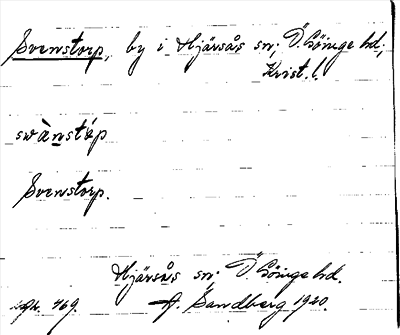 Svenstorp, by i Hjärsås sn; Ö. Göinge hd.,
Krist. l.
swànstóp
Svenstorp.
Hjärsås sn. Ö. Göinge hd.
769. A. Sandberg 1920.